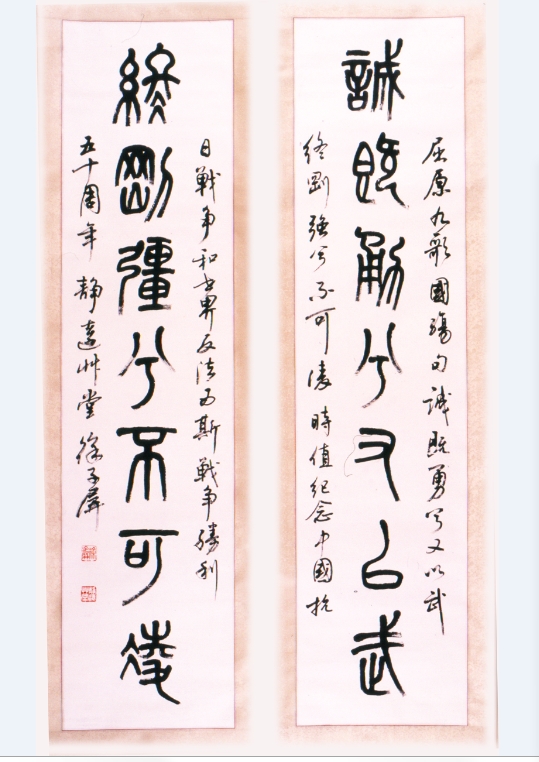 誠既勇兮又以武
終剛彊兮不可凌
屈原九歌國殤句誠既勇兮又以武
終剛強兮不可凌 時值纪念中國抗
日戰争和世界反法西斯戰争勝利
五十周年 靜遠艸堂 徐子屏